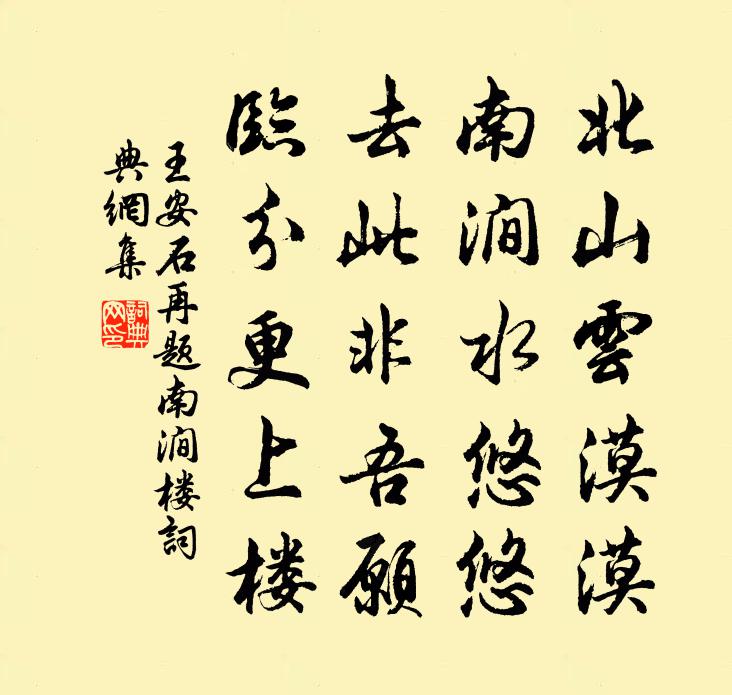 北山雲漠漠
南澗水悠悠
去此非吾願
臨分更上楼
王安石再题南澗楼詞
典網集
詞典
网印